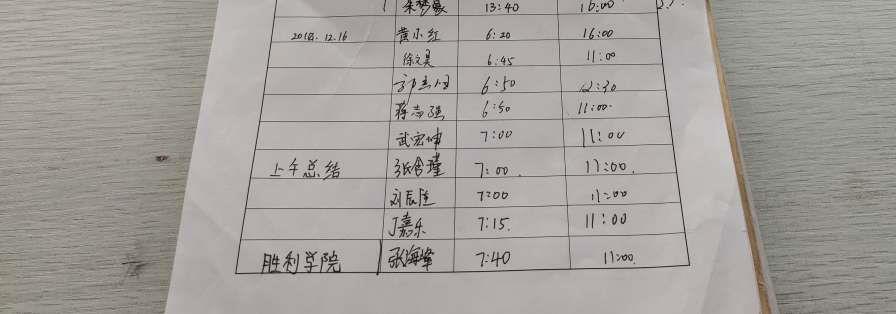 13:40 16:00
2018.12.16 黄小红 6:20 16:00
徐文昊 6:45 11:00
6:50 12:30
蒋志强 6:50 11:00
武宏坤 7:00 11:00
上午总结 张含瑾 7:00 11:00
刘辰 7:00 11:00
丁嘉乐 7:15 11:00
胜利学院 张海峰 7:40 11:00